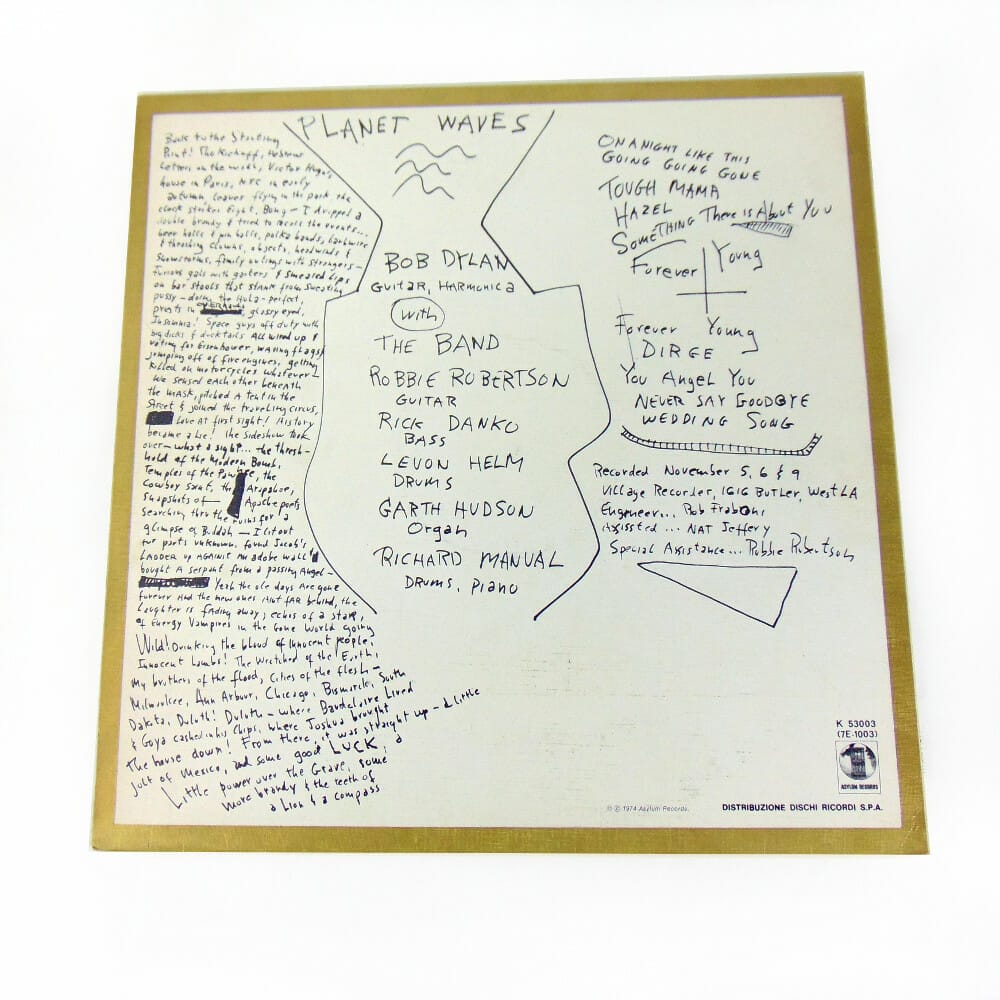 Back to the Starting
Point! The Kickoff, Hebrew
Letters on the walls, Victor Hugo's
house in Paris, NYC in early
autumn, leaves flying in the park, the
clock strikes Eight, Bong — I dropped a
double brandy & tried to recall the events...
beer halls & pin balls, polka bands, barbwire
& thrashing clowns, objects, headwinds &
Snowstorms, family outings with strangers —
Furious gals with garters & smeared Lips
on bar stools that stank from sweating
pussy — doing the Hula — perfect,
priests in OVERHAULS, glassy eyed,
Insomnia! Space guys off duty with
big dicks & ducktails All wired up &
voting for Eisenhower, waving flags &
jumping off of fire engines, getting
killed on motorcycles whatever —
We sensed each other beneath
the mask, pitched a tent in the
Street & joined the traveling circus,
Love At first sight! History
became a Lie! the sideshow took
over — what a sight... the thresh-
hold of the Modern Bomb,
Temples of the Pawnee, the
Cowboy saint, the Arapahoe,
snapshots of — Apache poets
Searching thru the ruins for a
glimpse of Buddah — I lit out
for parts unknown, found Jacob's
LADDER up AGAINST An adobe wall &
bought A serpent from a passing Angel —
Yeah the ole days Are gone
forever And the new ones Aint fAR behind, the
Laughter is fAding away, echos of a staR,
of Energy Vampires in the Gone World going
Wild! Drinking the blood of Innocent people,
Innocent Lambs! The Wretched of the Earth,
My brothers of the flood, Cities of the flesh —
Milwaukee, Ann Arbour, Chicago, Bismarck, South
Dakita, Duluth! Duluth — where Baudelaire Lived
& Goya cashed in his Chips, where Joshua brought
the house down! From there, it was straight up — a Little
jolt of Mexico, and some good LUCK, a
Little power over the Grave, some
More brandy & the teeth of
a Lion & a compass
PLANET WAVES
BOB DYLAN
GUITAR, HARMONICA
with
THE BAND
ROBBIE ROBERTSON
GUITAR
RICK DANKO
BASS
LEVON HELM
DRUMS
GARTH HUDSON
Organ
RICHARD MANUAL
DRUMS, PIANO
ON A NIGHT LIKE THIS
GOING GOING GONE
TOUGH MAMA
HAZEL
SOMETHING There is About You
Forever Young
Forever Young
DIRGE
You Angel You
NEVER SAY GOODBYE
WEDDING SONG
Recorded November 5, 6 & 9
Village Recorder, 1616 BUTLER, West LA
Engineer... Rob Fraboni
Assisted... NAT Jeffery
Special Assistance... Robbie Robertson
K 53003
(7E-1003)
ASYLUM RECORDS
℗ © 1974 Asylum Records.
DISTRIBUZIONE DISCHI RICORDI S.P.A.